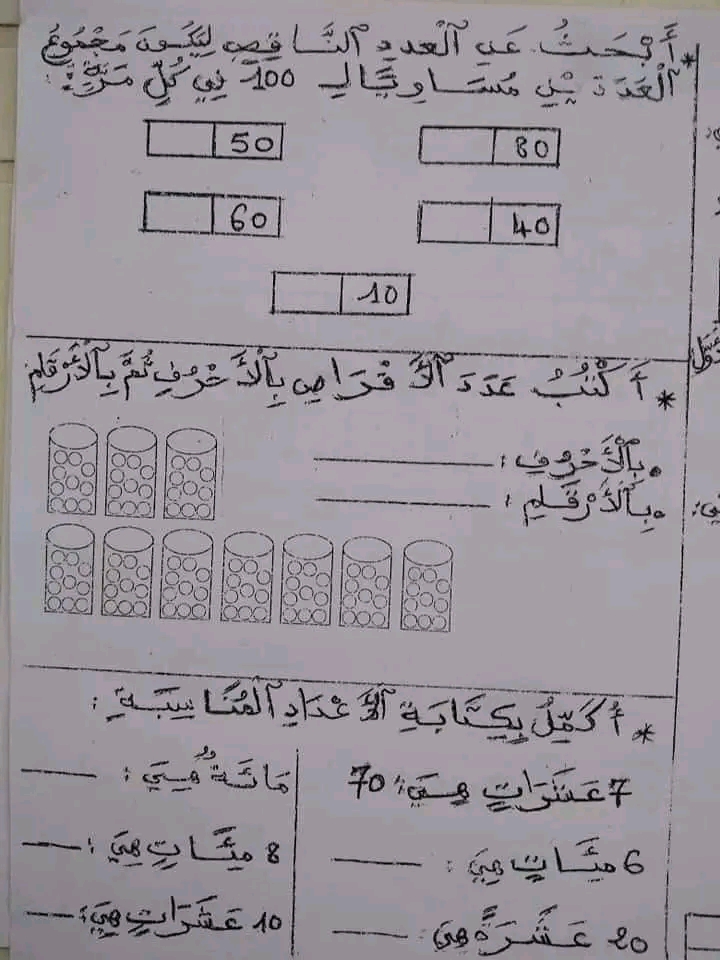 * أَبْحَثُ عَنِ الْعَدَدِ النَّاقِصِ لِيَكُونَ مَجْمُوعُ
الْعَدَدَيْنِ مُسَاوِيًا لِـ 100 فِي كُلِّ مَرَّةٍ:
80
50
40
60
10
* أَكْتُبُ عَدَدَ الْأَقْرَاصِ بِالْأَحْرُفِ ثُمَّ بِالْأَرْقَامِ
.بِالْأَحْرُفِ :
.بِالْأَرْقَامِ :
* أُكَمِّلُ بِكِتَابَةِ الْأَعْدَادِ الْمُنَاسِبَةِ :
7 عَشَرَاتٍ هِيَ: 70
6 مِئَاتٍ هِيَ :
20 عَشَرَةً هِيَ
مَائَةٌ هِيَ :
8 مِئَاتٍ هِيَ :
10 عَشَرَاتٍ هِيَ: